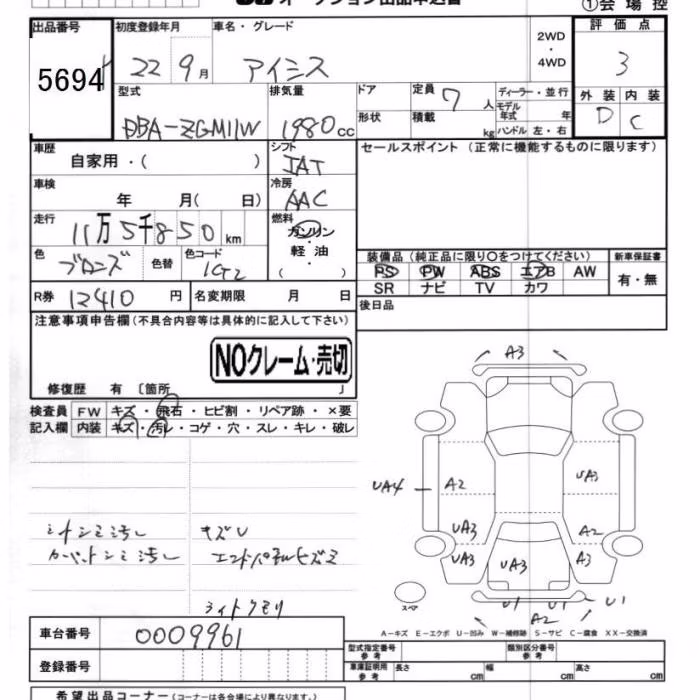 ①会場控
出品番号 初度登録年月 車名・グレード 2WD・4WD 評価点
5694 22 9月 アイシス 3
型式 排気量 ドア 定員 7人 ディーラー・並行 外装 内装
DBA-ZGM11W 1980cc 形状 積載 kg モデル年式 年 D C
ハンドル 左・右
車歴 シフト セールスポイント (正常に機能するものに限ります)
自家用・( ) IAT
車検 冷房
年 月( 日) AAC
走行 11万5千850km 燃料 ガソリン
軽油
色 ブロンズ 色替 色コード ( ) 装備品(純正品に限り○をつけてください) 新車保証書
PS PW ABS エアB AW 有・無
R券 12410円 名変期限 月 日 SR ナビ TV カワ
注意事項申告欄(不具合内容等は具体的に記入して下さい) 後日品
NOクレーム・売切
修復歴 有 〔箇所 〕
検査員 FW キズ・飛石・ヒビ割・リペア跡・×要
記入欄 内装 キズ・汚レ・コゲ・穴・スレ・キレ・破レ
A3
UA4 A2 UA3
UA3 A2
UA3 UA3 A3
シートシミ汚レ キズU
カーペットシミ汚レ エンドパネルヒズミ
ライトクモリ
スペア U1 U1 U1
A2
A-キズ E-エクボ U-凹み W-補修跡 S-サビ C-腐食 XX-交換済
車台番号 0009961
型式指定番号参考 類別区分番号参考
登録番号 車庫証明用参考 長さ cm 幅 cm 高さ cm
希望出品コーナー(コーナーは各会場により異なります。)